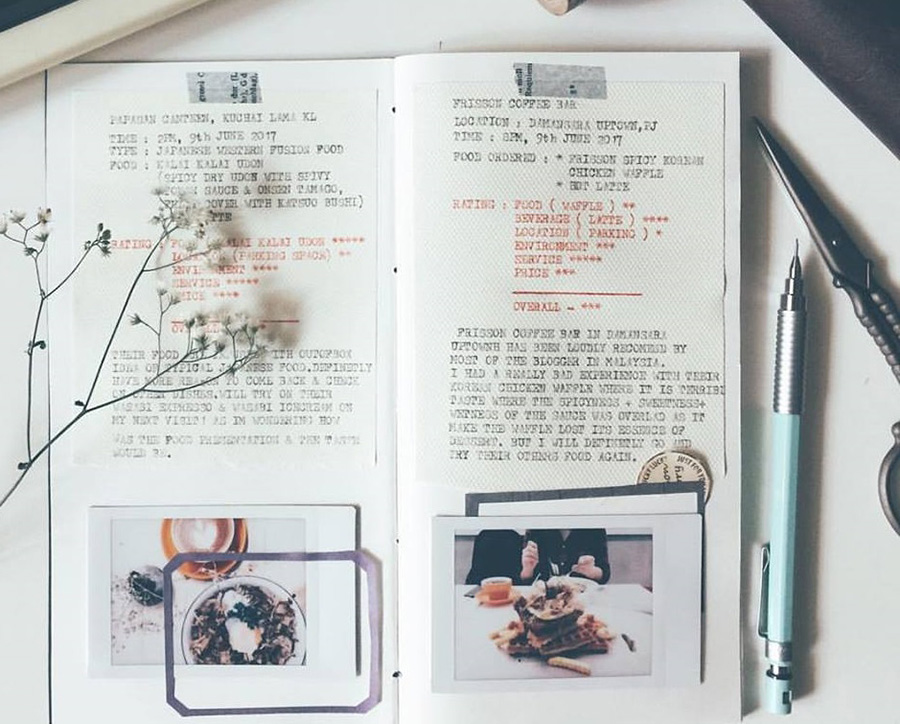 PAPAHAN CANTEEN, KUCHAI LAMA KL
TIME : 2PM, 9th JUNE 2017
TYPE : JAPANESE WESTERN FUSION FOOD
FOOD : KALAI KALAI UDON
(SPICY DRY UDON WITH SPIVY
SAUCE & ONSEN TAMAGO,
COVER WITH KATSUO BUSHI)
RATING : KALAI KALAI UDON *****
(PARKING SPACE) **
ENVIRONMENT ****
SERVICE *****
PRICE ****
THEIR FOOD WITH OUTOFBOX
IDEA OF TYPICAL JAPANESE FOOD.DEFINETLY
HAVE MORE REASON TO COME BACK & CHECK
ON OTHER DISHES.WILL TRY ON THEIR
WASABI EXPRESSO & WASABI ICECREAM ON
MY NEXT VISIT! AS IM WONDERING HOW
WAS THE FOOD PRESENTATION & THE TASTE
WOULD BE.
FRISSON COFFEE BAR
LOCATION ; DAMANSARA UPTOWN,PJ
TIME : 8PM, 9th JUNE 2017
FOOD ORDERED : * FRISSON SPICY KOREAN
CHICKEN WAFFLE
* HOT LATTE
RATING : FOOD ( WAFFLE ) **
BEVERAGE ( LATTE ) ****
LOCATION ( PARKING ) *
ENVIRONMENT ***
SERVICE *****
PRICE ***
OVERALL - ***
FRISSON COFFEE BAR IN DAMANSARA
UPTOWNH HAS BEEN LOUDLY RECOMEND BY
MOST OF THE BLOGGER IN MALAYSIA.
I HAD A REALLY BAD EXPERIENCE WITH THEIR
KOREAN CHICKEN WAFFLE WHERE IT IS TERRIBL
TASTE WHERE THE SPICYNESS + SWEETNESS+
WETNESS OF THE SAUCE WAS OVERLAD AS IT
MAKE THE WAFFLE LOST ITS ESSENCE OF
DESSERT. BUT I WILL DEFINETLY GO AND
TRY THEIR OTHERS FOOD AGAIN.